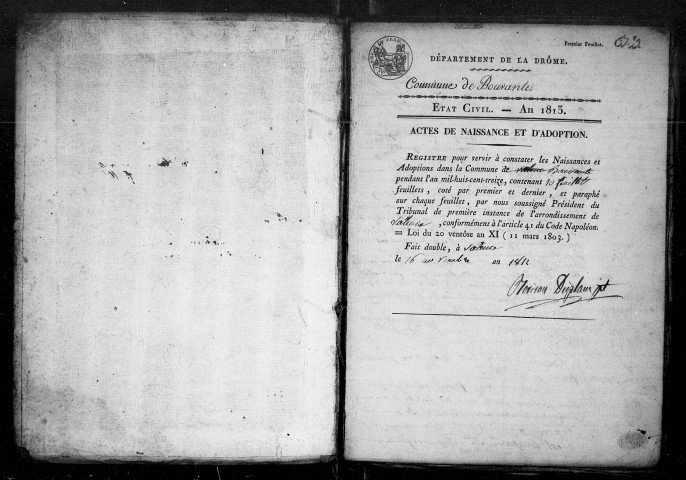 Premier Feuillet.
DÉPARTEMENT DE LA DRÔME.
Commune de Bouvantes
ETAT CIVIL. — AN 1813.
ACTES DE NAISSANCE ET D'ADOPTION.
REGISTRE pour servir à constater les Naissances et
Adoptions dans la Commune de Bouvante
pendant l'an mil-huit-cent-treize, contenant 10 feuillets
feuillets, coté par premier et dernier, et paraphé
sur chaque feuillet, par nous soussigné Président du
Tribunal de première instance de l'arrondissement de
Valence, conformément à l'article 41 du Code Napoléon.
= Loi du 20 ventôse an XI (11 mars 1803.)
Fait double, à Valence
le 16 novembre an 1812